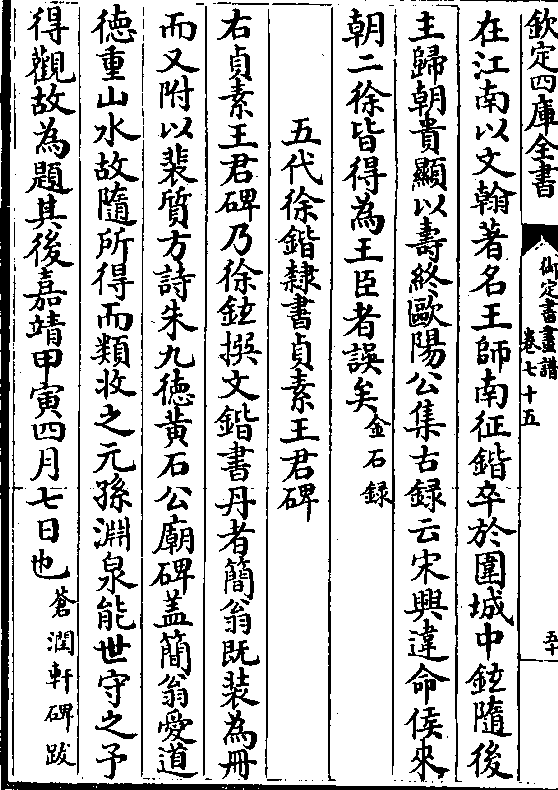 欽定四庫全書
御定書畫譜
卷七十五
在江南以文翰著名王師南征鍇卒於圍城中鉉隨後
主歸朝貴顯以壽終歐陽公集古録云宋興違命侯來
朝二徐皆得為王臣者誤矣金石録
五代徐鍇隸書貞素王君碑
右貞素王君碑乃徐鉉撰文鍇書丹者簡翁既装為冊
而又附以裴質方詩朱九徳黄石公廟碑盖簡翁愛道
徳重山水故隨所得而類收之元孫淵泉能世守之予
得觀故為題其後嘉靖甲寅四月七日也蒼潤軒碑跋